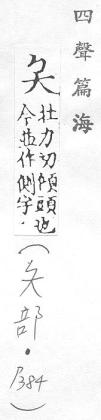 四聲篇海
夨
壮力切傾頭也
今並作側字
(夨部・P384)